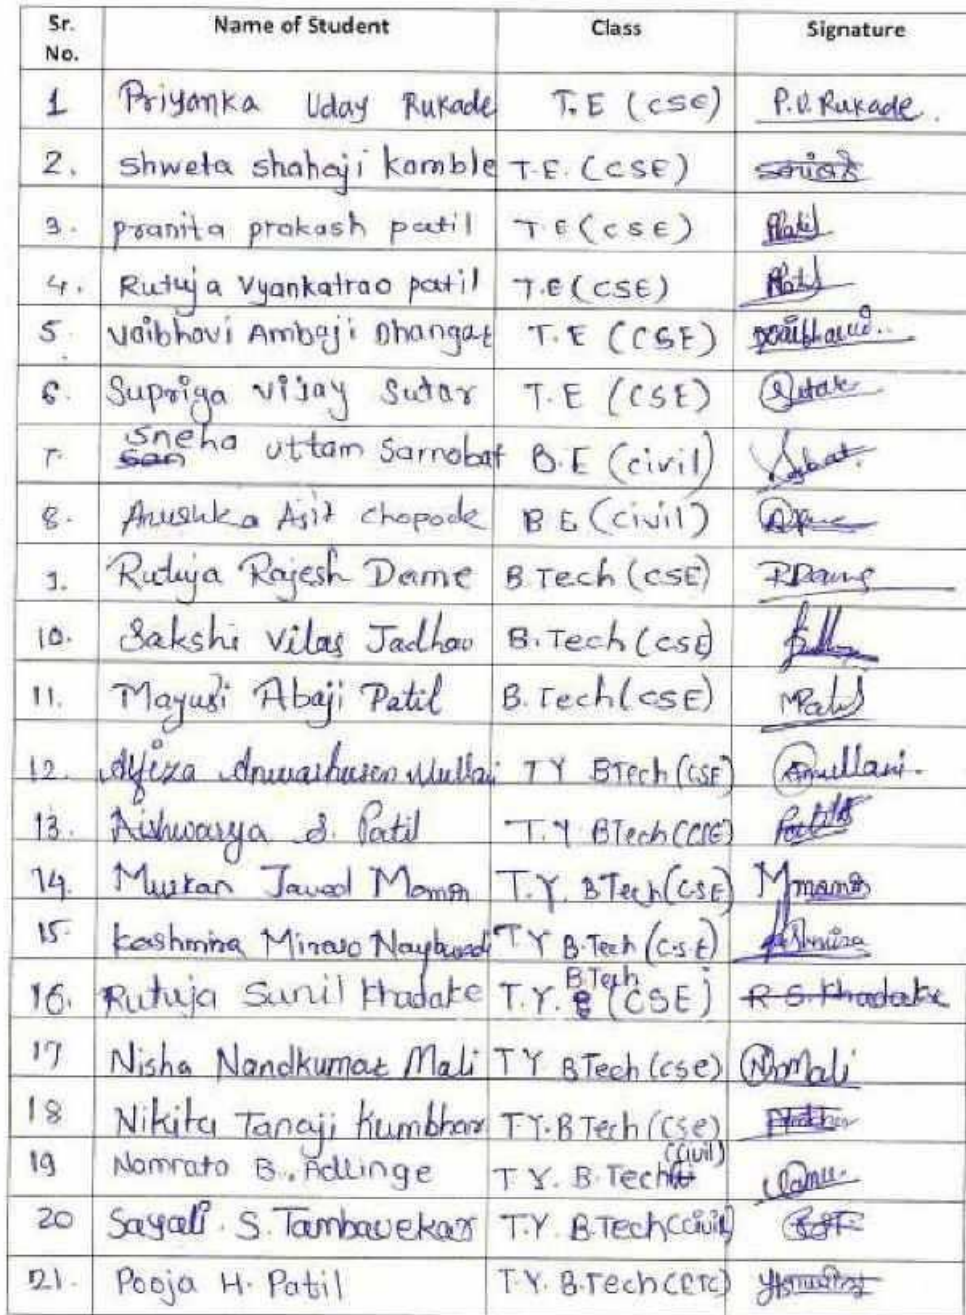 Sr. No. Name of Student Class Signature
1 Priyanka Uday Rukade T.E (CSE) P.U.Rukade.
2. Shweta shahaji kamble T.E. (CSE)
3. pranita prakash patil T.E (CSE) PPatil
4. Rutuja Vyankatrao patil T.E (CSE) Patil
5. Vaibhavi Ambaji Dhangat T.E (CSE)
6. Supriya Vijay Sutar T.E (CSE) Sutar
7. Sneha Uttam Sarnobat B.E (civil)
8. Anushka Ajit chopade B E (civil)
9. Rutuja Rajesh Dame B.Tech (CSE) RDame
10. Sakshi Vilas Jadhav B.Tech (CSE)
11. Mayuri Abaji Patil B.Tech (CSE) MPatil
12. Afiza Anwarhusen Mullani TY BTech (CSE) Amullani.
13. Aishwarya S. Patil T.Y BTech (CSE)
14. Muskan Javed Momin T.Y. BTech (CSE)
15. Kashmira Minaso T Y B.Tech (C.S.E)
16. Rutuja Sunil Khadake T.Y. BTech (CSE) R S. Khadake
17 Nisha Nandkumar Mali T Y B Tech (cse) NMali
18 Nikita Tanaji Kumbhar T.Y. B Tech (Cse)
19 Namrata B. Adlinge T Y. B. Tech (Civil)
20 Sayali. S. Tambavekar T.Y. B.Tech (civil)
21. Pooja H. Patil T.Y. B.Tech (ETC)